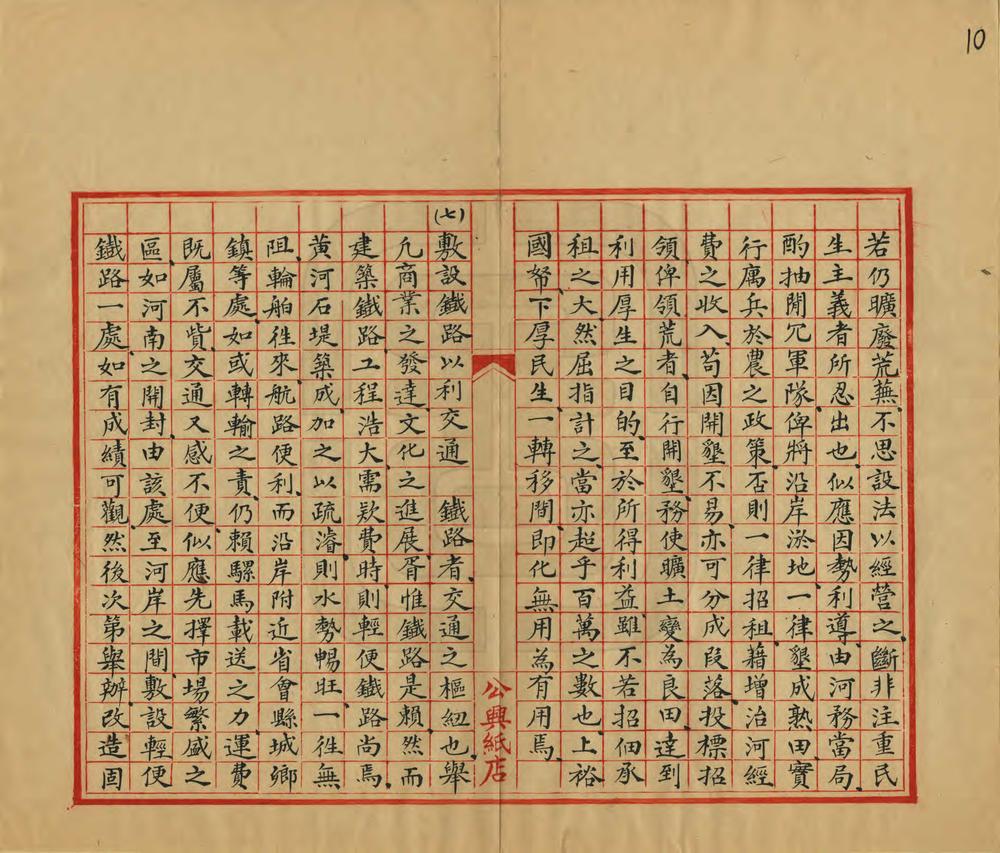 10
若仍曠廢荒蕪、不思設法以經營之、斷非注重民
生主義者所忍出也、似應因勢利導、由河務當局、
酌抽閒冗軍隊、俾將沿岸淤地、一律墾成熟田、實
行屬兵於農之政策、否則一律招租、藉增治河經
費之收入、苟因開墾不易、亦可分成段落、投標招
領、俾領荒者、自行開墾、務使曠土變為良田、達到
利用厚生之目的、至於所得利益、雖不若招佃承
租之大、然屈指計之、當亦超乎百萬之數也、上裕
國帑、下厚民生、一轉移間、即化無用為有用焉、
(七)敷設鐵路以利交通　鐵路者、交通之樞紐也、舉
凡商業之發達、文化之進展、胥惟鐵路是賴、然而
建築鐵路、工程浩大、需欵費時、則輕便鐵路尚焉、
黃河石堤築成、加之以疏濬、則水勢暢旺、一徃無
阻、輪舶徃來、航路便利、而沿岸附近省會縣城鄉
鎮等處、如或轉輸之責、仍賴騾馬載送之力、運費
既屬不貲、交通又感不便、似應先擇市塲繁盛之
區、如河南之開封、由該處至河岸之間、敷設輕便
鐵路一處、如有成績可觀、然後次第舉辦、改造固
公興紙店